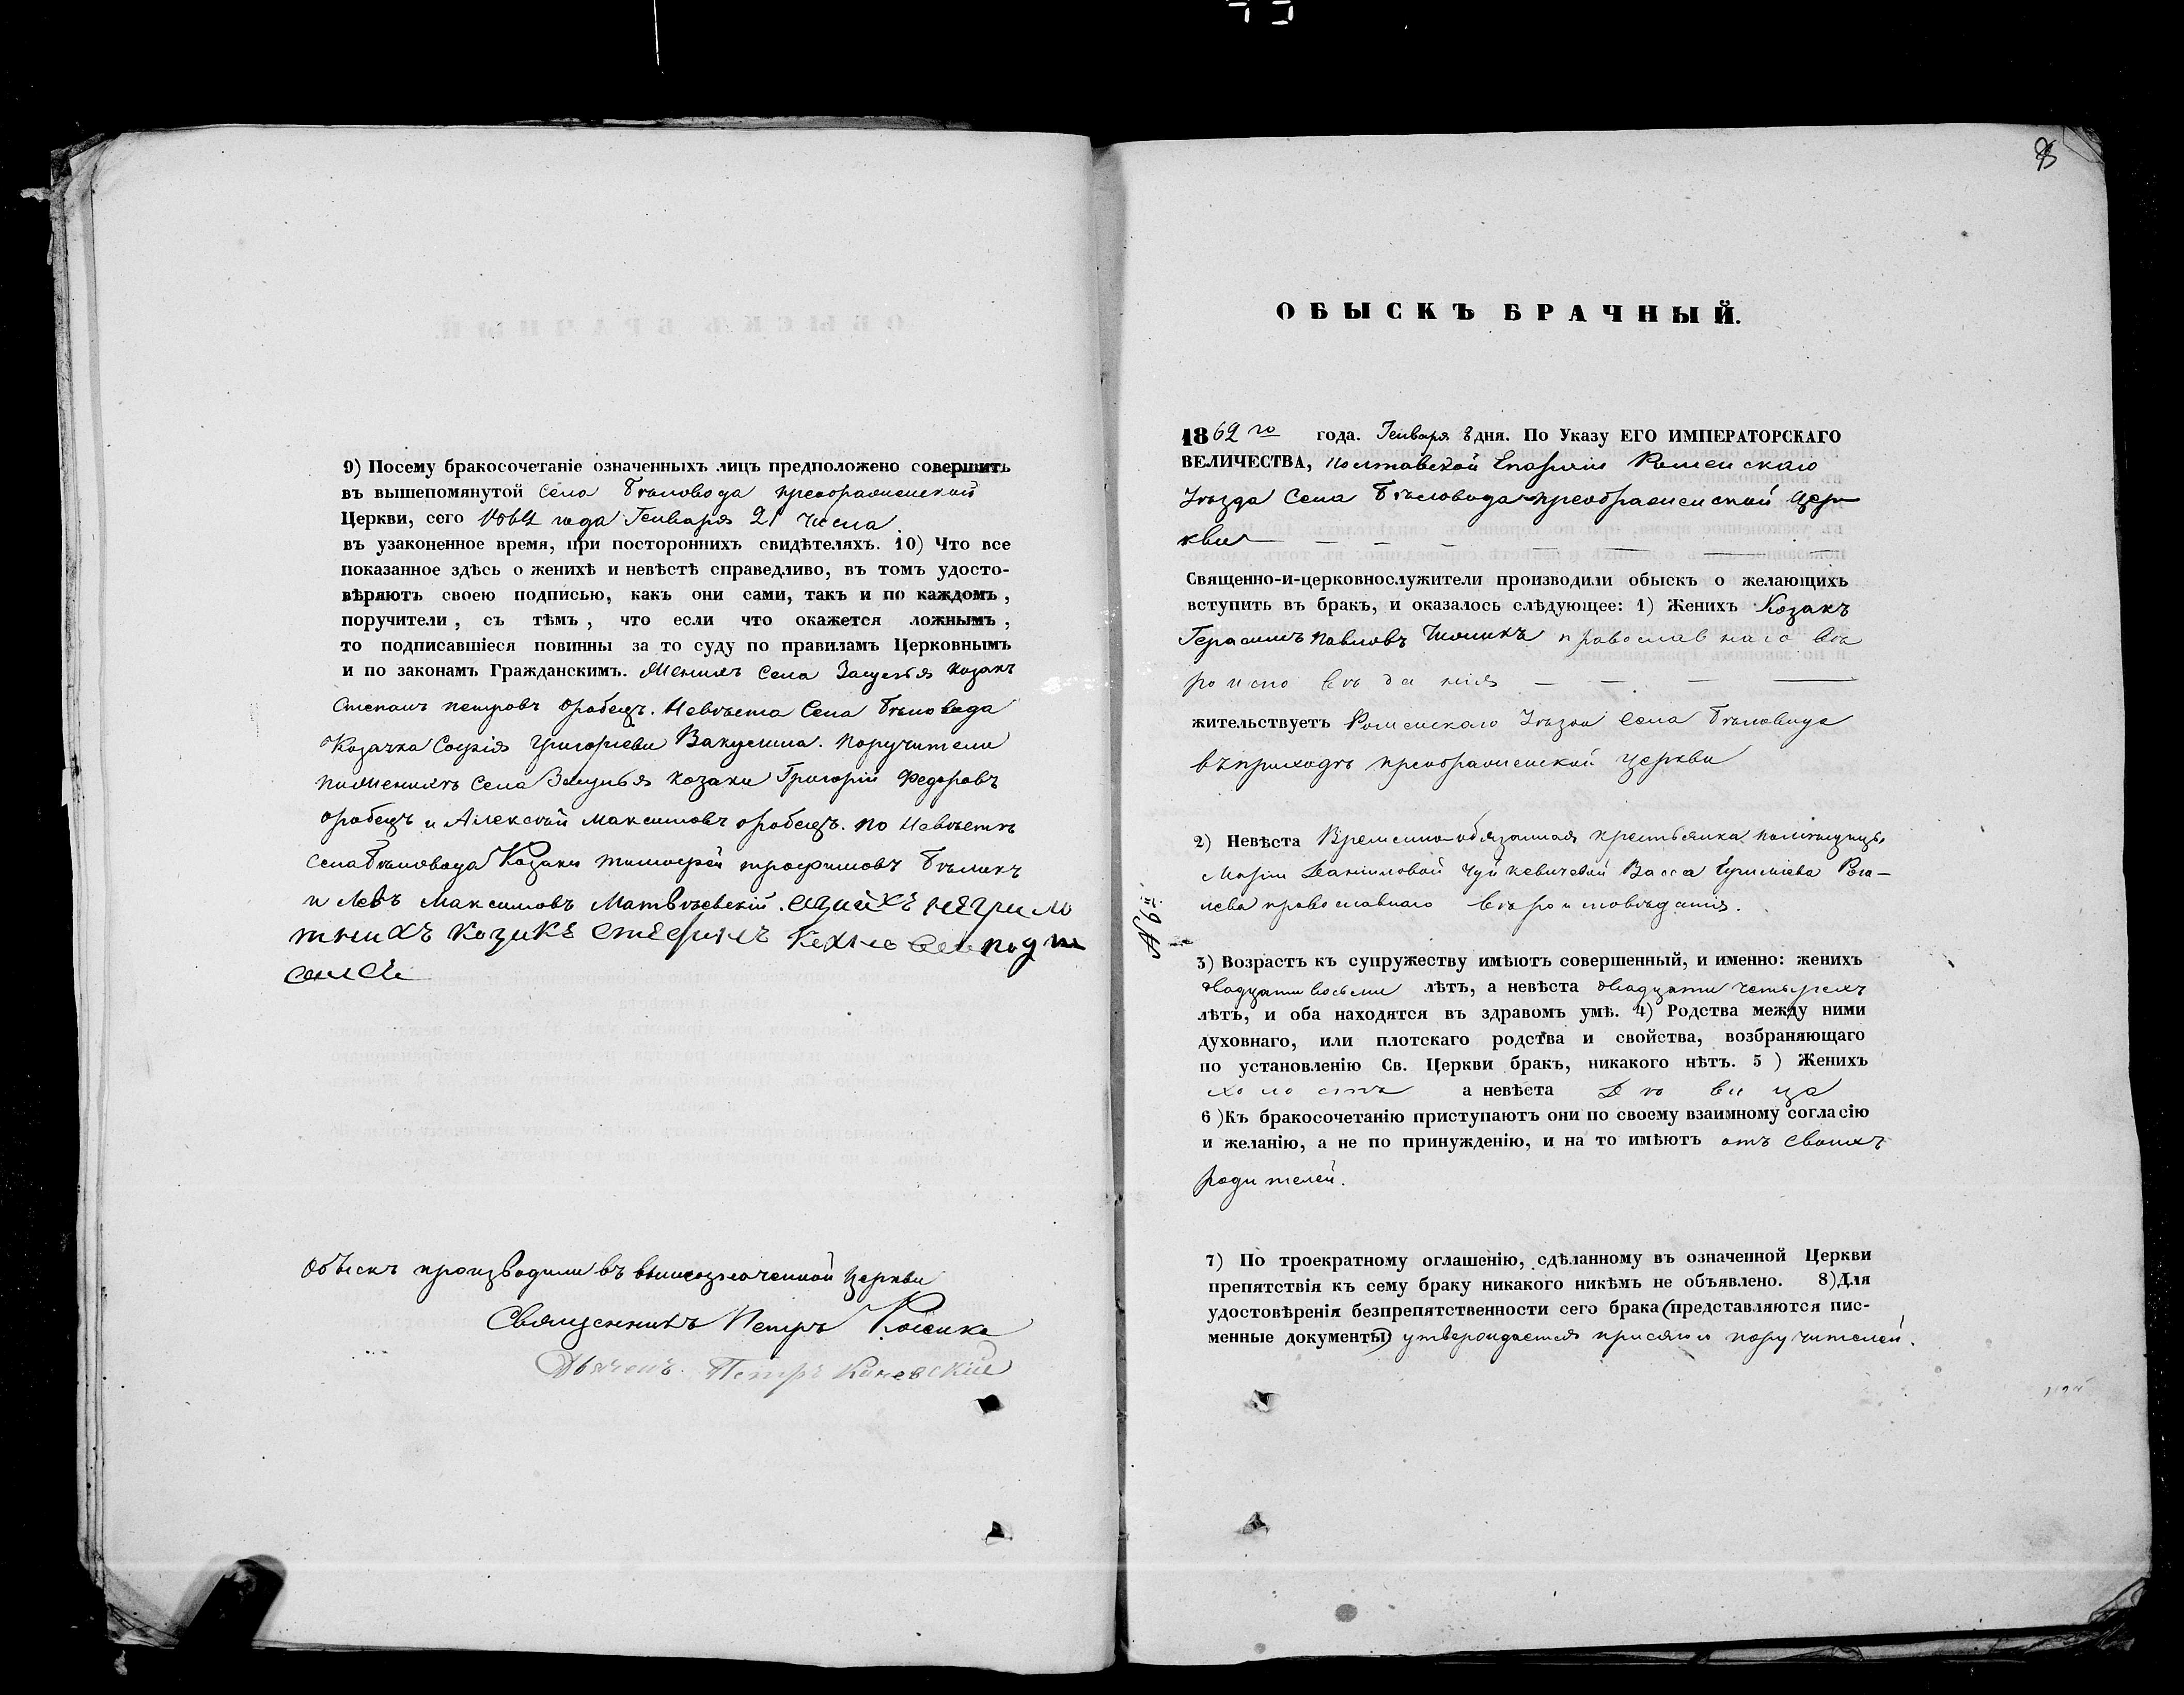 9) Посему бракосочетаніе означенныхъ лицъ предположено совершить
въ вышепомянутой села Бѣловода преображенской
Церкви, сего года Генваря 21 числа.
въ узаконенное время, при постороннихъ свидѣтеляхъ. 10) Что все
показанное здѣсь о женихѣ и невѣстѣ справедливо, въ томъ удосто-
вѣряютъ своею подписью, какъ они сами, такъ и по каждомъ,
поручители, съ тѣмъ, что если что окажется ложнымъ,
то подписавшіеся повинны за то суду по правиламъ Церковнымъ
и по законамъ Гражданскимъ. Женихъ села Засулья козакъ
Степанъ петровъ оробецъ. Невѣста Села Бѣловода
Козачка Софія Григорiева Вакулина. Поручители
по женихѣ Села Засулья козаки Григорій Федоровъ
оробецъ и Алексѣй Максимовъ оробецъ. по Невѣстѣ
села Бѣловода Козаки тимофей трофимовъ Бѣликъ
и Левъ Максимовъ Матвѣевскій. а за нихъ неграмо
тнихъ козакъ Стефанъ подпи
сался
Обыскъ производили въ вышеозначенной Церкви
Священникъ Петръ
Дьячекъ. Петръ Коневскій
8
ОБЫСКЪ БРАЧНЫЙ.
1862 го года. Генваря 8 дня. По Указу ЕГО ИМПЕРАТОРСКАГО
ВЕЛИЧЕСТВА, Полтавской Епархіи Роменскаго
Уѣзда Села Бѣловода преображенской Цер-
кви
Священно-и-церковнослужители производили обыскъ о желающихъ
вступить въ бракъ, и оказалось слѣдующее: 1) Женихъ Козакъ
Герасимъ Павловъ православнаго вѣ
роисповѣданія
жительствуетъ Роменскаго Уѣзда села Бѣловода
въ приходѣ преображенской церкви
2) Невѣста Временно-обязанная крестьянка помѣщицы
Маріи Даниловой Чуйкевичевой Васса Рога-
лева православнаго вѣроисповѣданія.
3) Возрастъ къ супружеству имѣютъ совершенный, и именно: женихъ
двадцати восьми лѣтъ, а невѣста двадцати четырехъ
лѣтъ, и оба находятся въ здравомъ умѣ. 4) Родства между ними
духовнаго, или плотскаго родства и свойства, возбраняющаго
по установленію Св. Церкви бракъ, никакого нѣтъ. 5) Женихъ
холостъ а невѣста Дѣвица
6) Къ бракосочетанію приступаютъ они по своему взаимному согласію
и желанію, а не по принужденію, и на то имѣютъ отъ своихъ
родителей.
7) По троекратному оглашенію, сдѣланному въ означенной Церкви
препятствія къ сему браку никакого никѣмъ не объявлено. 8) Для
удостовѣренія безпрепятственности сего брака (представляются пис-
менные документы) утверждается присягою поручителей.